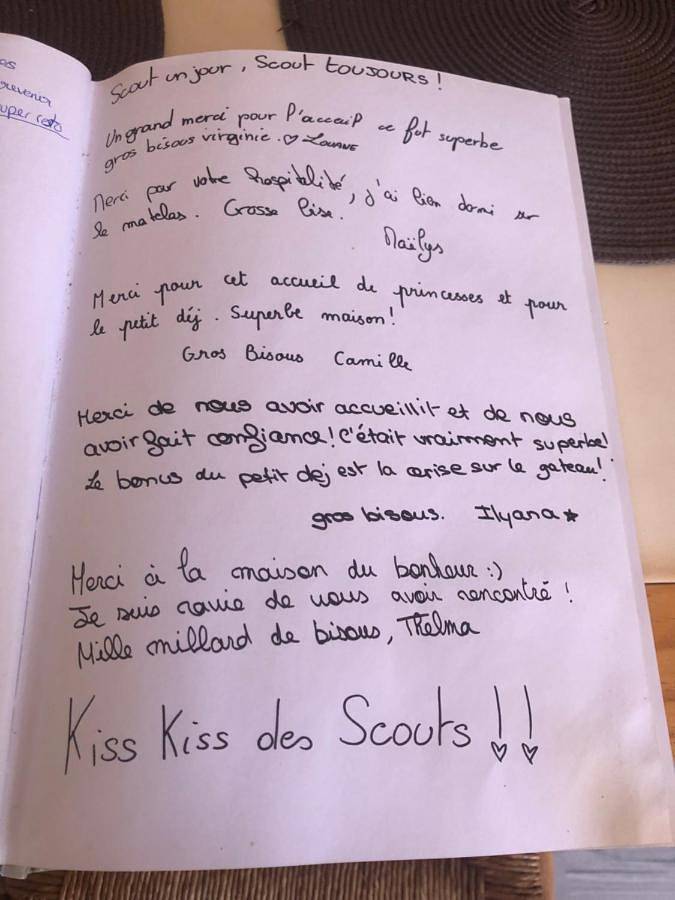 es
revenir
uper resto
Scout un jour, Scout toujours !
Un grand merci pour l'accueil ce fut superbe
gros bisous virginie. ♡ Louane
Merci pour votre hospitalité, j'ai bien dormi sur
le matelas. Grosse bise.
Maïlys
Merci pour cet accueil de princesses et pour
le petit déj. Superbe maison!
Gros Bisous Camille
Merci de nous avoir accueillit et de nous
avoir fait confiance! C'était vraiment superbe!
Le bonus du petit dej est la cerise sur le gateau!
gros bisous. Ilyana ★
Merci à la maison du bonheur :)
Je suis ravie de vous avoir rencontré !
Mille millard de bisous, Thelma
Kiss Kiss des Scouts !!